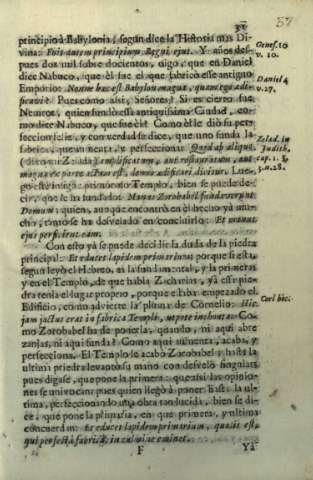 57
principio à Babylonia, segun dice la Historia mas Di-
vina: Fuit autem principium Regni ejus. Y años des-
pues dos mil sobre docientos, oigo, que en Daniel
dice Nabuco, que èl fue el que fabricò esse antiguo
Emporio: Nonne hæc est Babylon magna, quam ego ædi-
ficavi? Pues còmo assi, Señores? Si es cierto fue
Nemrot, quien fundò essa antiquissima Ciudad, co-
mo dice Nabuco, que fue èl? Como èl le diò su per-
feccion feliz, y con verdad se dice, que uno funda la
fabrica, que aumenta, y perfecciona: Quid ab aliquo,
(dixo mi Zelada) amplificatum, aut restauratum, aut
magna ex parte actum est, domo ædificari dicitur. Lue-
go este insigne primoroso Templo, bien se puede de-
cir, que le ha fundado: Manus Zorobabel fundaverunt
Domum: quien, aunque encontrò en èl hecho yà mu-
cho, tanto se ha desvelado en concluirlo: Et manus
ejus perficient eam.
Con esto yà se puede decidir la duda de la piedra
principal: Et educet lapidem primarium: porque si esta,
segun leyò el Hebreo, es la fundamental, y la primera
y en el Templo, de que habla Zacharias, yà essa pie
dreà tenia el lugar proprio, porque estaba empezado el
Edificio, como advierte la pluma de Cornelio: Hic
jam jactus erat in fabrica Templi, utpote inchoata: Co-
mo Zorobabel ha de ponerla, quando, ni aqui abre
zanjas, ni aqui funda? Como aqui aumenta, acaba, y
perfecciona. El Templo le acabò Zorobabel; hasta la
ultima piedra levantò su mano con desvelo singular:
pues digase, que pone la primera: que assi las opinio-
nes se univocan: pues quien llegò à poner hasta la ul-
tima, perfeccionando una obra tan lucida, bien se di-
ce, que pone la primaria, en que primera, y ultima
concurren: Et educet lapidem primarium, qualis est,
qui perfectâ fabricâ, in culmine eminet.
F
Yà
Genes. 10
v. 10.
Daniel 4
v. 27.
Zelad. in
Judith,
cap. 1. §.
3. n. 28.
Corl hic: